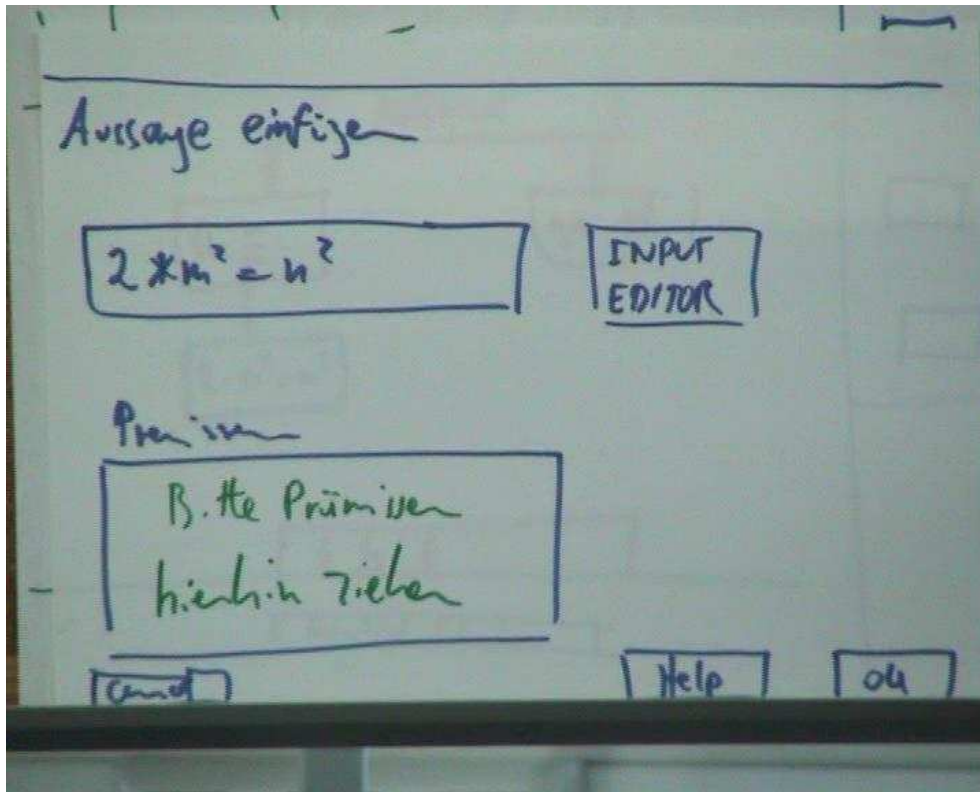 Aussage einfügen
2 * m² = n²
INPUT
EDITOR
Premissen
Bitte Prämissen
hierhin ziehen
Cancel
Help
Ok